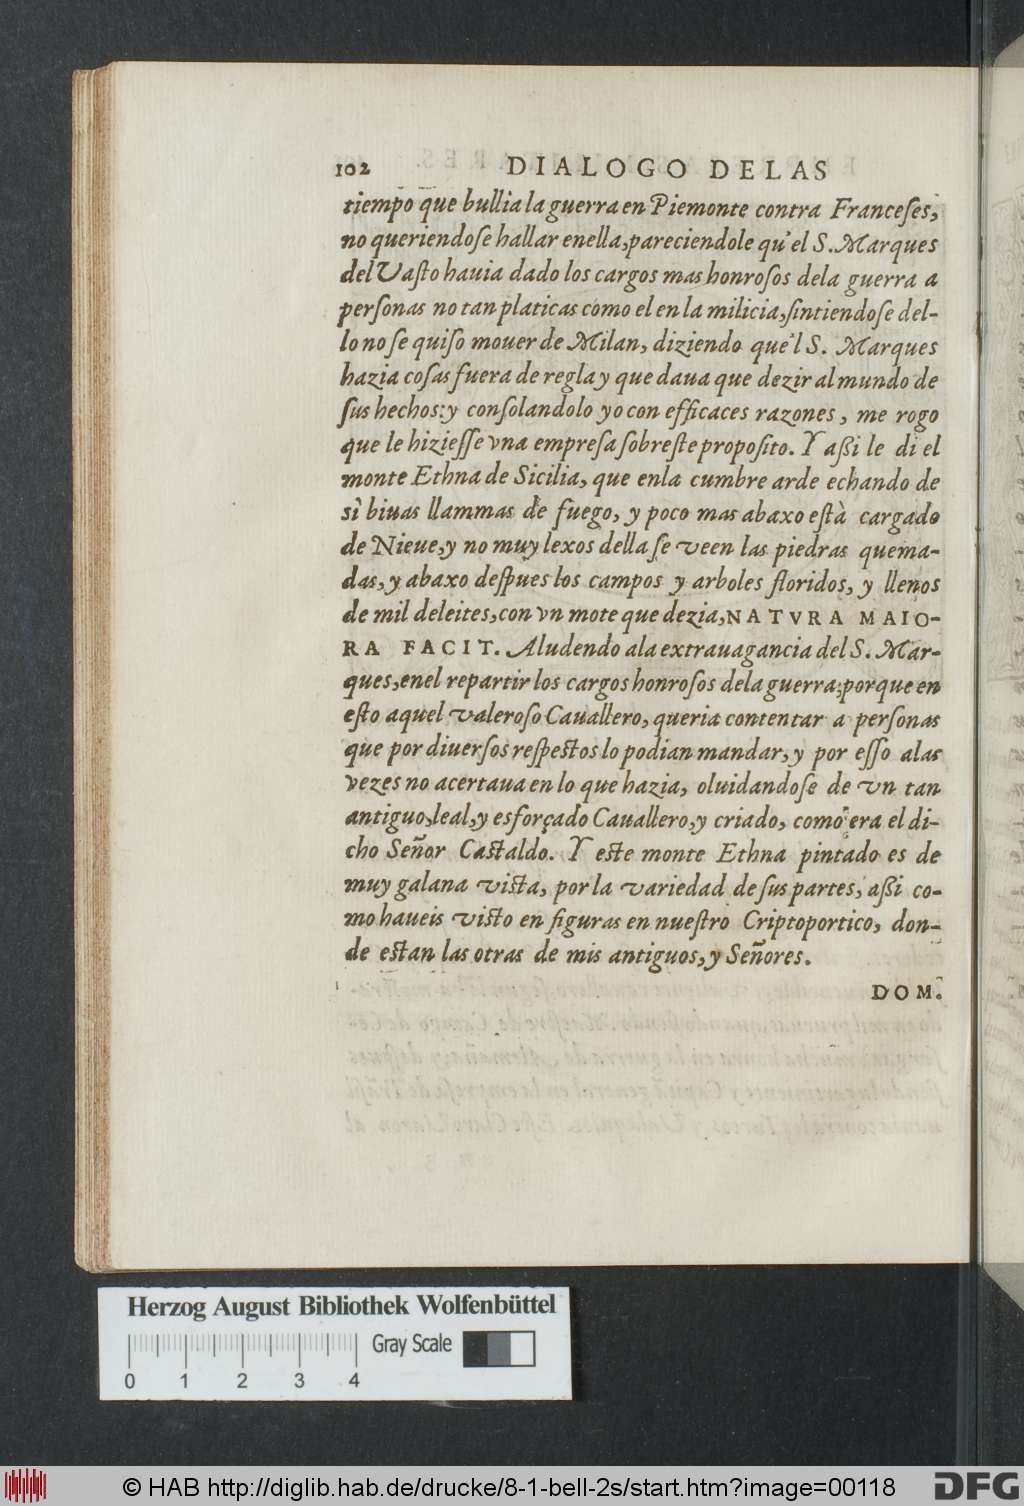 102 DIALOGO DELAS
tiempo que bullia la guerra en Piemonte contra Franceſes,
no queriendoſe hallar enella, pareciendole qu'el S. Marques
del Vaſto hauia dado los cargos mas honroſos dela guerra a
perſonas no tan platicas como el en la milicia, ſintiendoſe del-
lo no ſe quiſo mouer de Milan, diziendo que'l S. Marques
hazia coſas fuera de regla y que daua que dezir al mundo de
ſus hechos: y conſolandolo yo con efficaces razones, me rogo
que le hizieſſe vna empreſa ſobreſte propoſito. Y aßi le di el
monte Ethna de Sicilia, que enla cumbre arde echando de
sì biuas llammas de fuego, y poco mas abaxo eſtà cargado
de Nieue, y no muy lexos della ſe veen las piedras quema-
das, y abaxo deſpues los campos y arboles floridos, y llenos
de mil deleites, con vn mote que dezia, NATVRA MAIO-
RA FACIT. Aludendo ala extrauagancia del S. Mar-
ques, enel repartir los cargos honroſos dela guerra; porque en
eſto aquel valeroſo Cauallero, queria contentar a perſonas
que por diuerſos reſpectos lo podian mandar, y por eſſo alas
vezes no acertaua en lo que hazia, oluidandoſe de vn tan
antiguo, leal, y esforçado Cauallero, y criado, como era el di-
cho Señor Caſtaldo. Y eſte monte Ethna pintado es de
muy galana viſta, por la variedad de ſus partes, aßi co-
mo haueis viſto en figuras en nueſtro Criptoportico, don-
de eſtan las otras de mis antiguos, y Señores.
DOM.
Herzog August Bibliothek Wolfenbüttel
Gray Scale
0 1 2 3 4
© HAB http://diglib.hab.de/drucke/8-1-bell-2s/start.htm?image=00118
DFG